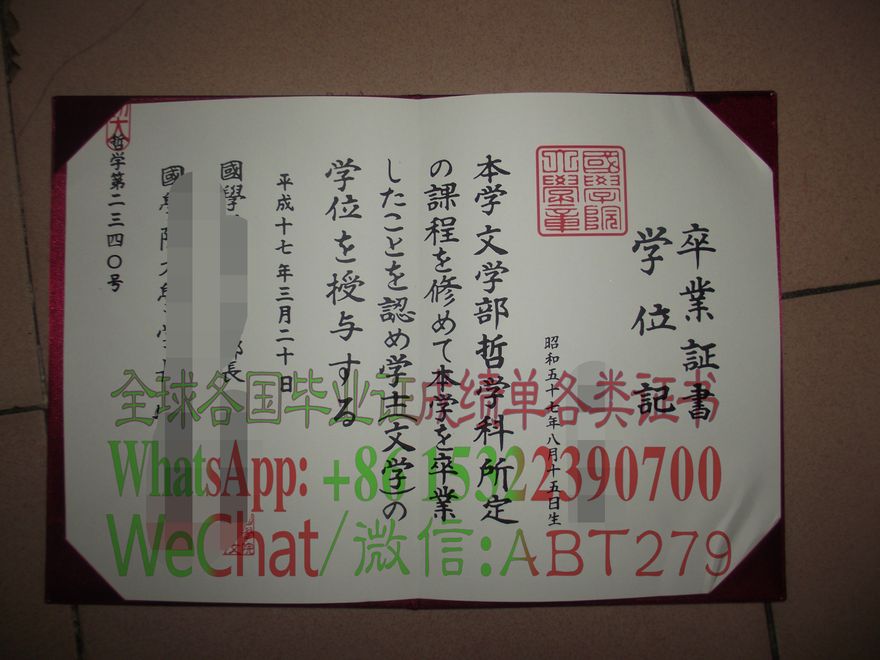 卒業証書
学位記
國學院
大學章
昭和五十七年八月十五日生
本学文学部哲学科所定
の課程を修めて本学を卒業
したことを認め学士(文学)の
学位を授与する
平成十七年三月二十日
國學
部長
國學院大學
哲学第二三四〇号
全球各国毕业证成绩单各类证书
WhatsApp: +86 15322390700
WeChat/微信:ABT279